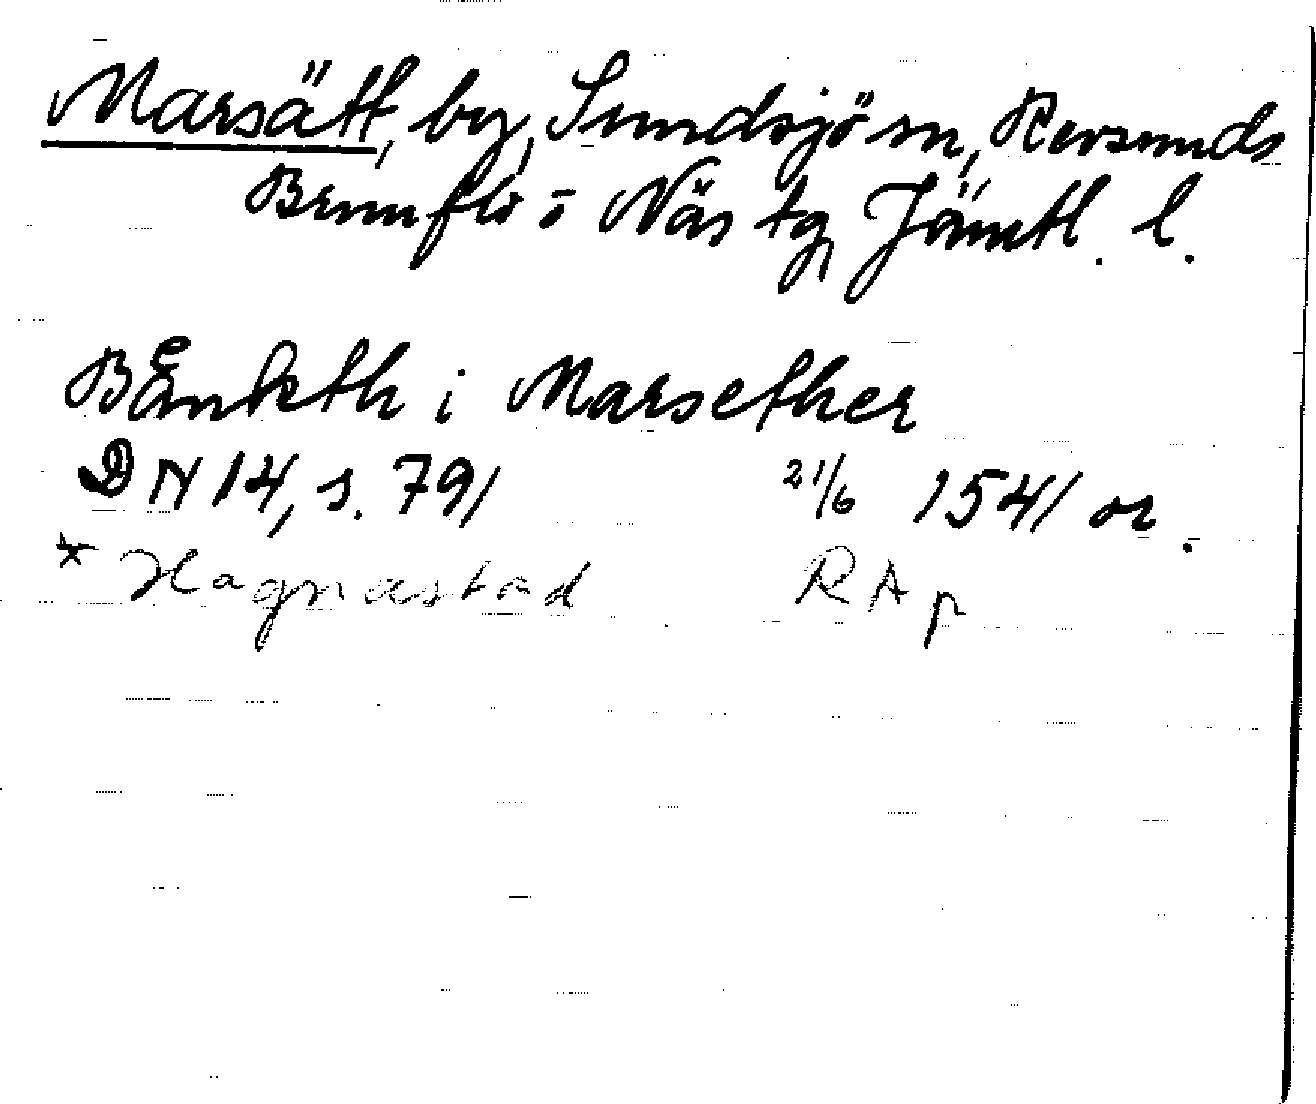 Marsätt, by, Sundsjö sn, Revsunds
Brunflo o Näs tg, Jämtl. l.
Bænkth i Marsether
DN 14, s. 791 21/6 1541 or.
* Hagnastad RAp